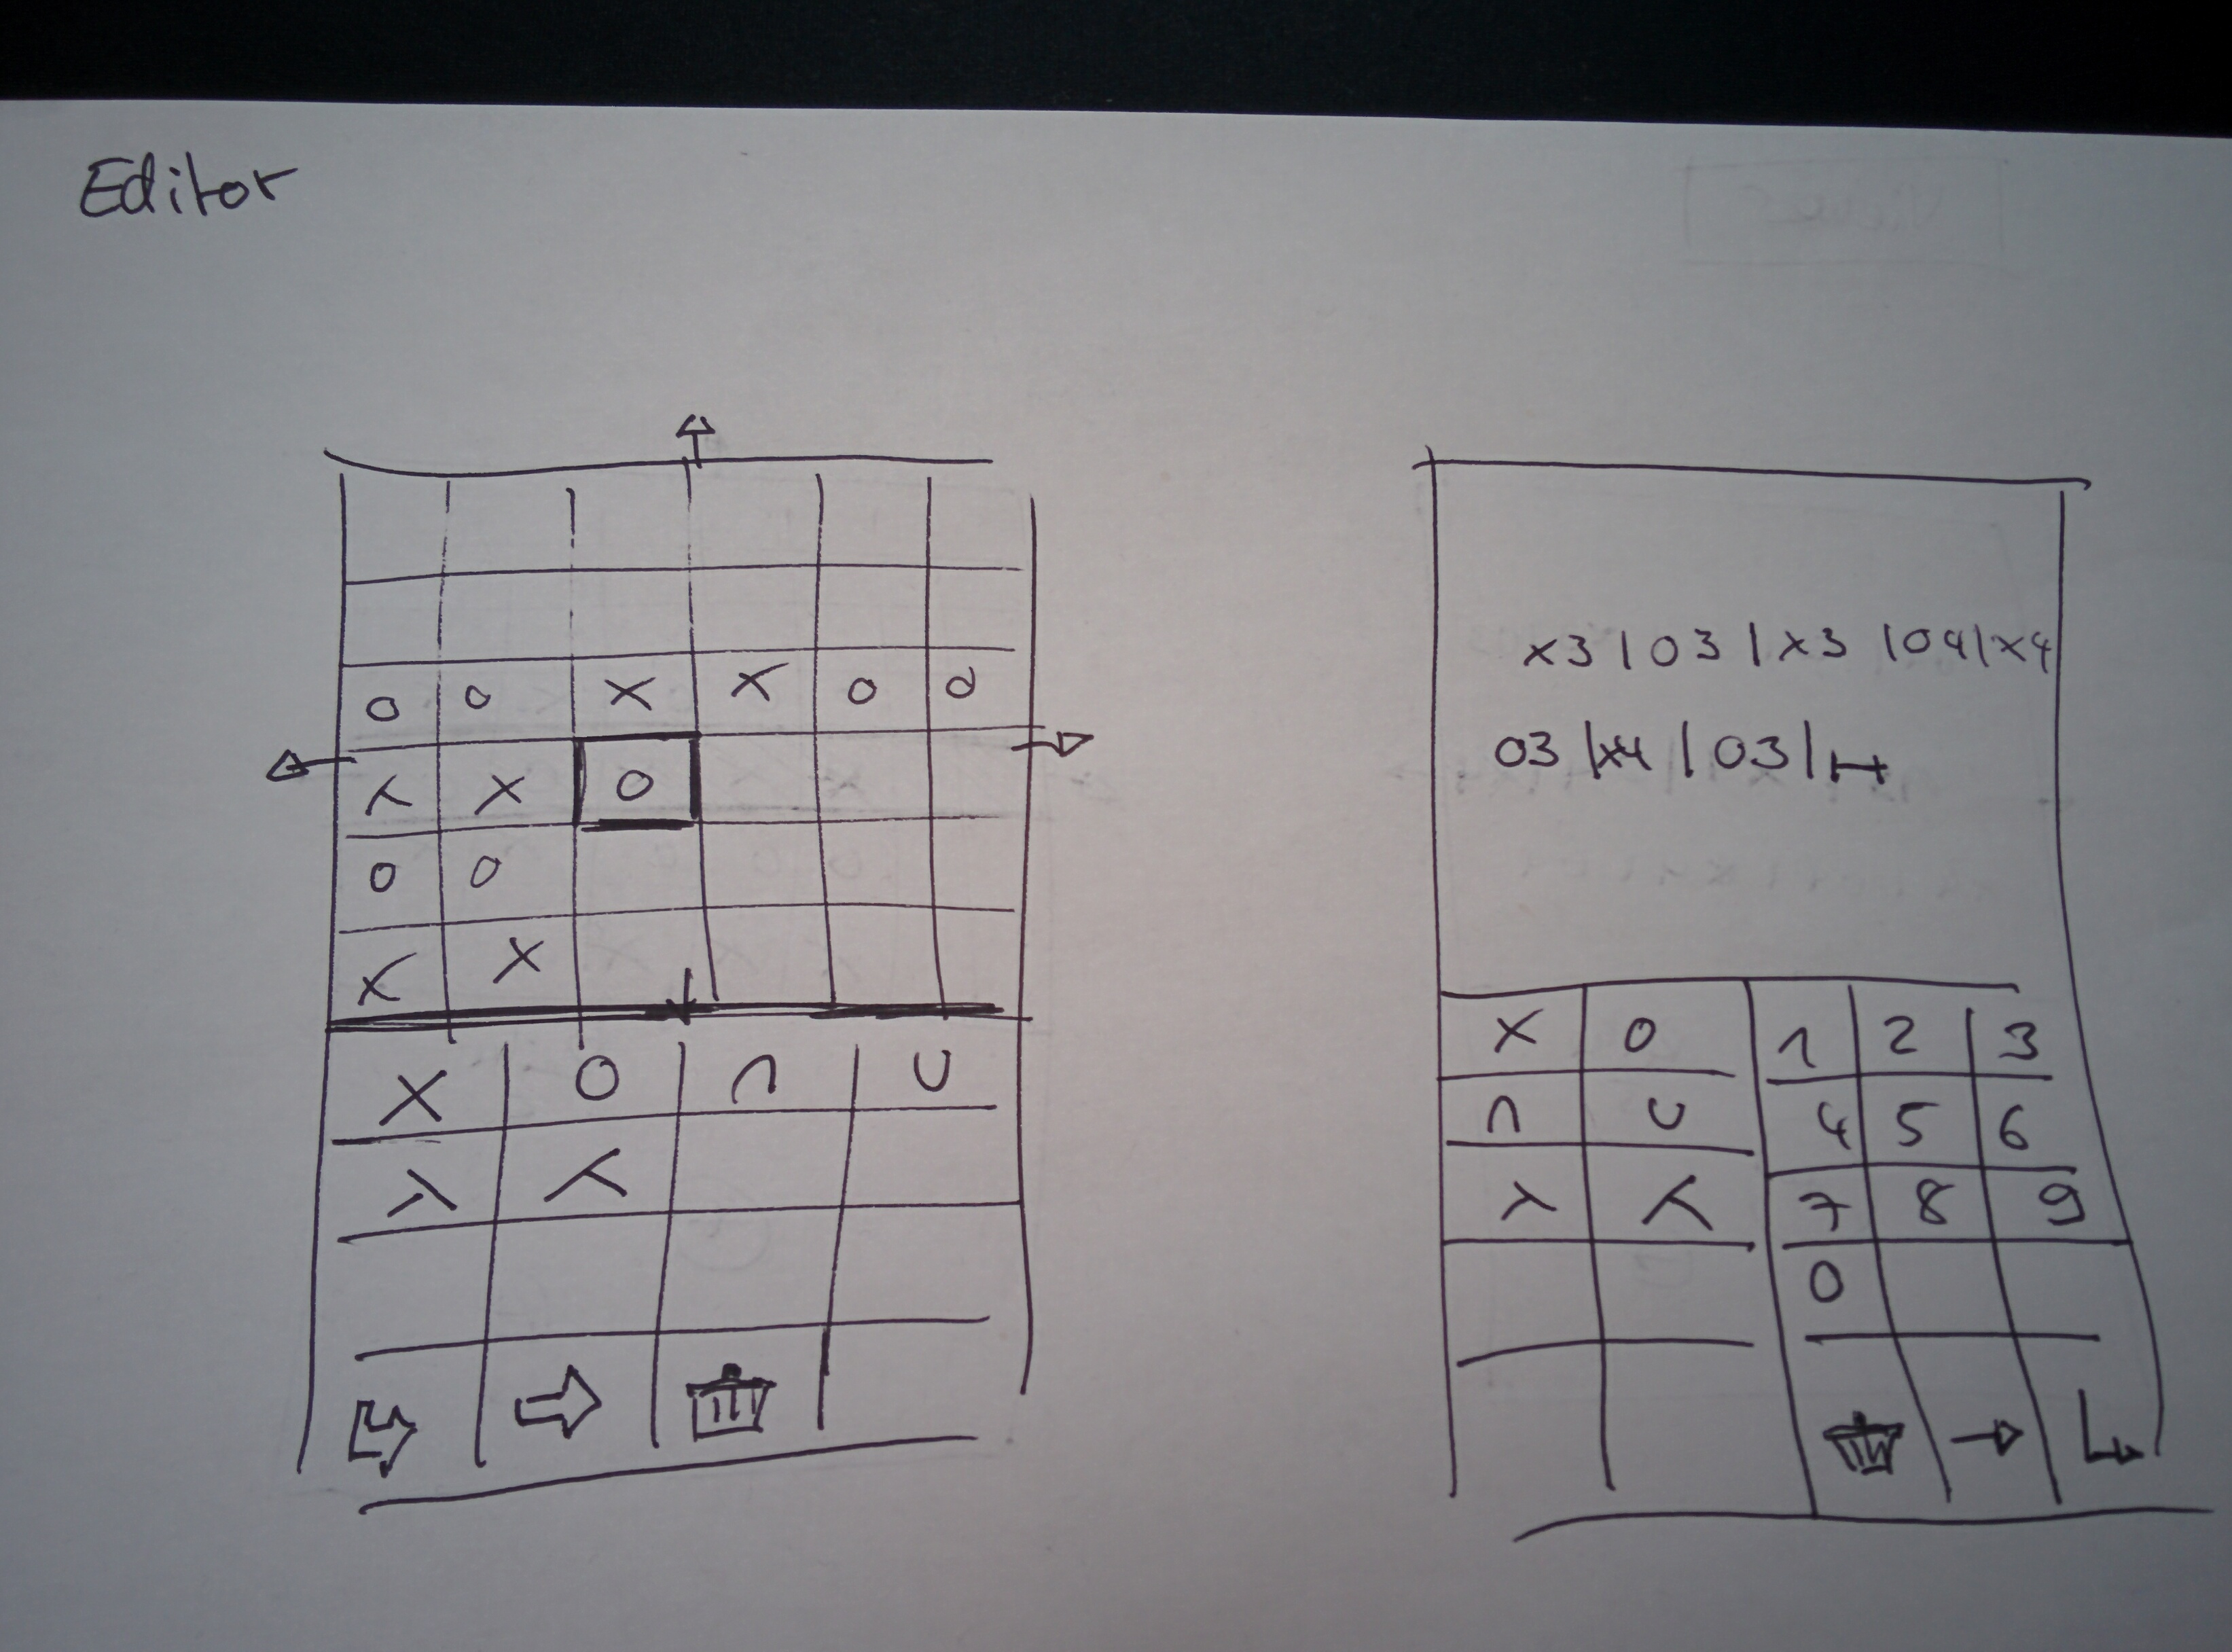 Editor
o o x x o o
⅄ x o
o o
x x
X O ∩ ∪
⋋ ⋌
x3 | 03 | x3 | 04 | x4
03 | x4 | 03 |
x o 1 2 3
∩ ∪ 4 5 6
⋋ ⋌ 7 8 9
0